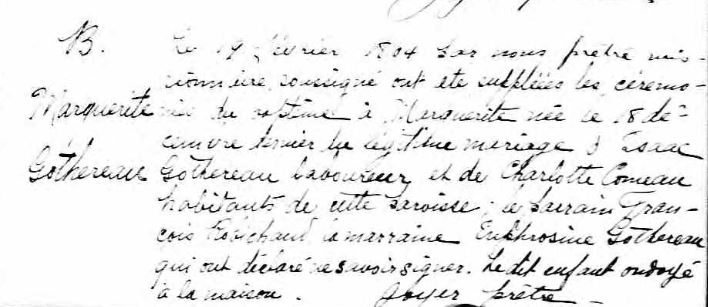 B. Le 19 février 1804 par nous prêtre mis-
sionnaire soussigné ont été suppléées les cérémo-
Marguerite nies du baptême à Marguerite née le 18 dé-
cembre dernier du légitime mariage d'Isaac
Gothereau Gothereau laboureur et de Charlotte Comeau
habitants de cette paroisse; le parrain Fran-
çois Robichaud, la marraine Euphrosine Gothereau
qui ont déclaré ne savoir signer. Le dit enfant ondoyé
à la maison. Joyer prêtre